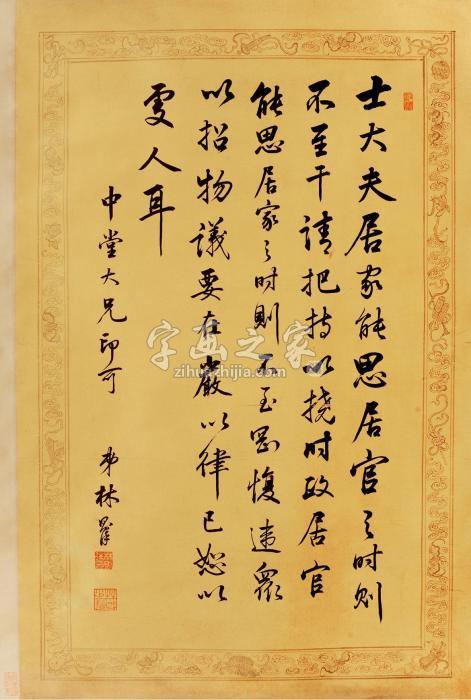 士大夫居家能思居官之時則
不至干請把持以撓時政居官
能思居家之時則不至剛愎違眾
以招物議要在嚴以律己恕以
處人耳
中堂大兄印可
弟林翼
字画之家
zihuazhijia.com